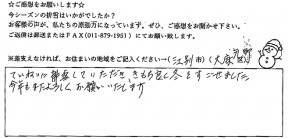 ☆ご感想をお願いします☆
今シーズンの排雪はいかがでしたか？
お客様の声が、私たちの原動力になっています。ぜひ、ご感想をお聞かせ下さい。
ご返信は郵送またはFAX（011-879-1951）にてお願い致します。
※差支えなければ、お住まいの地域をご記入ください→（江別市）（大麻
ていねいに排雪していただき、きもち良く冬をすごせました
今年もまたよろしくお願いいたします